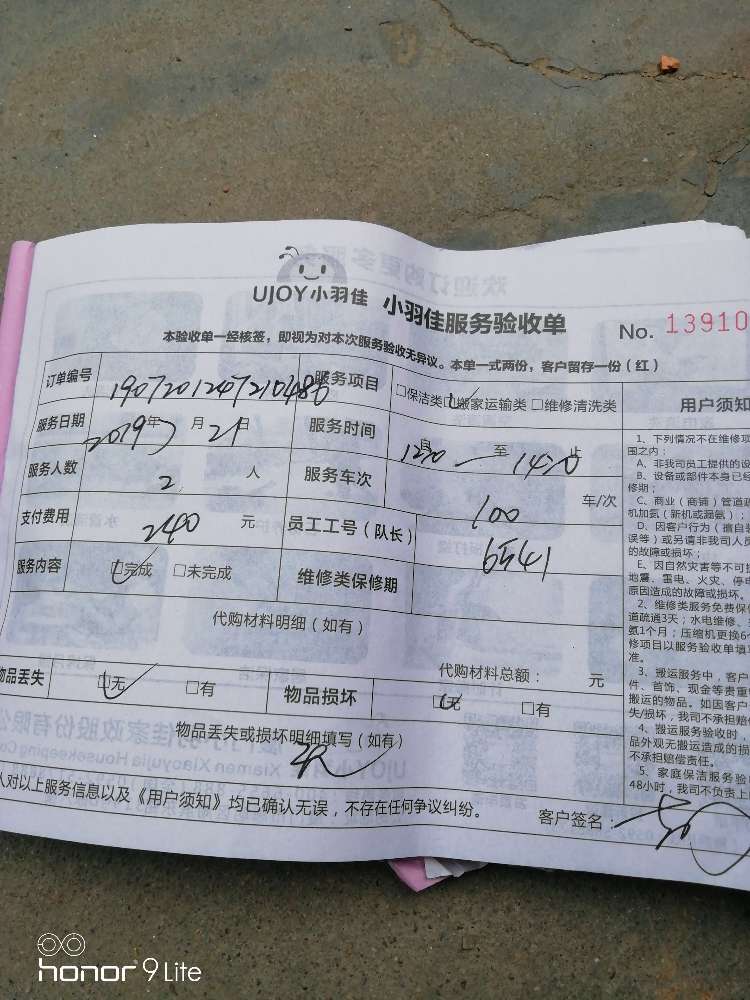 UJOY小羽佳 小羽佳服务验收单 No. 13910
本验收单一经核签,即视为对本次服务验收无异议。本单一式两份,客户留存一份(红)
订单编号 1907201247210486 服务项目 □保洁类 □搬家运输类 □维修清洗类
服务日期 2019年7月21日 服务时间 至 止
服务人数 2 人 服务车次 100 车/次
支付费用 240 元 员工工号(队长) 6541
服务内容 □完成 □未完成 维修类保修期
代购材料明细(如有)
代购材料总额: 元
物品丢失 □无 □有 物品损坏 □无 □有
物品丢失或损坏明细填写(如有)
人对以上服务信息以及《用户须知》均已确认无误,不存在任何争议纠纷。 客户签名:
用户须知
1、下列情况不在维修项
围之内:
A、非我司员工提供的设
B、设备或部件本身已经
修期;
C、商业(商铺)管道疏
机加氨(新机或漏氨);
D、因客户行为(擅自装
误等)或另请非我司人员
的故障或损坏;
E、因自然灾害等不可抗
地震、雷电、火灾、停电
原因造成的故障或损坏。
2、维修类服务免费保修
道疏通3天;水电维修、
氨1个月;压缩机更换6个
修项目以服务验收单填
准。
3、搬运服务中,客户
件、首饰、现金等贵重
搬运的物品。如因客户
失/损坏,我司不承担赔
4、搬运服务验收时,
品外观无搬运造成的损
不承担赔偿责任。
5、家庭保洁服务验
48小时,我司不负责上
honor 9 Lite